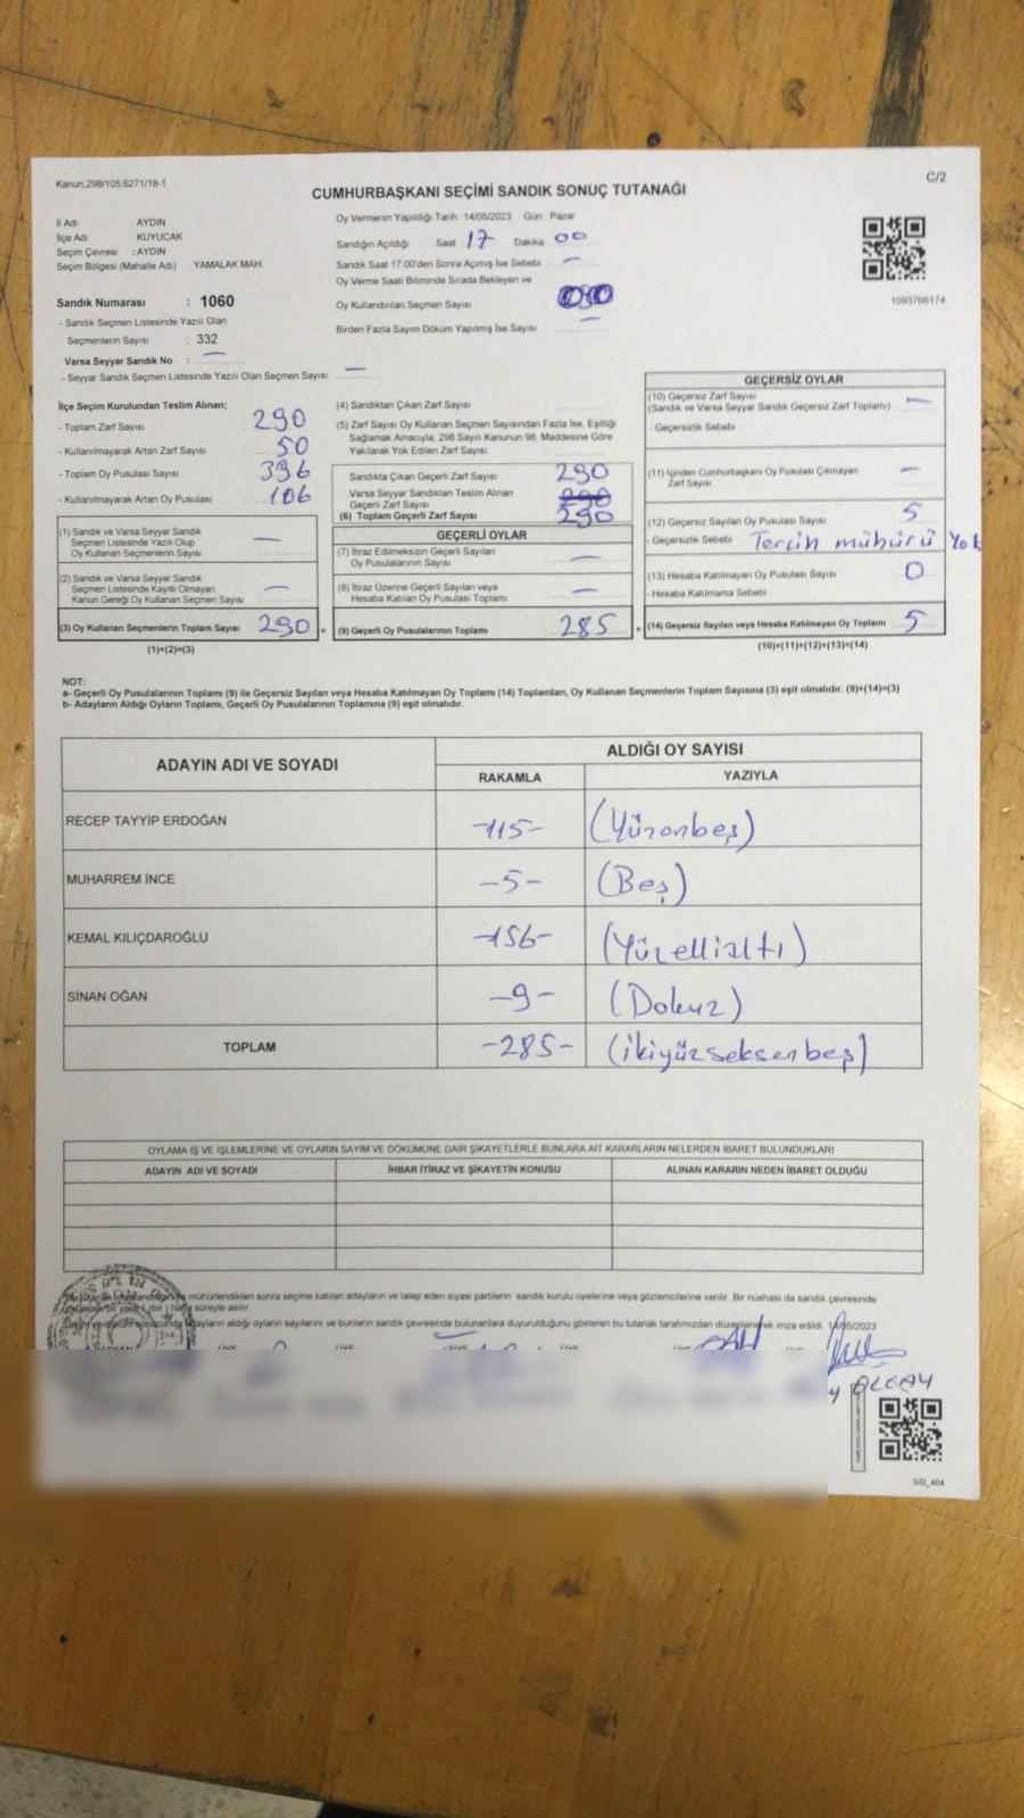 Kanun:298/105,6271/18-1
C/2
CUMHURBAŞKANI SEÇİMİ SANDIK SONUÇ TUTANAĞI
İl Adı : AYDIN
İlçe Adı KUYUCAK
Seçim Çevresi : AYDIN
Seçim Bölgesi (Mahalle Adı) YAMALAK MAH.
Sandık Numarası : 1060
- Sandık Seçmen Listesinde Yazılı Olan
Seçmenlerin Sayısı : 332
Varsa Seyyar Sandık No : —
- Seyyar Sandık Seçmen Listesinde Yazılı Olan Seçmen Sayısı —
Oy Vermenin Yapıldığı Tarih :14/05/2023 Gün : Pazar
Sandığın Açıldığı Saat 17 Dakika 00
Sandık Saat 17:00'den Sonra Açılmış İse Sebebi —
Oy Verme Saati Bitiminde Sırada Bekleyen ve
Oy Kullandırılan Seçmen Sayısı
Birden Fazla Sayım Döküm Yapılmış İse Sayısı —
1093766174
İlçe Seçim Kurulundan Teslim Alınan;
- Toplam Zarf Sayısı 290
- Kullanılmayarak Artan Zarf Sayısı 50
- Toplam Oy Pusulası Sayısı 396
- Kullanılmayarak Artan Oy Pusulası 106
(1) Sandık ve Varsa Seyyar Sandık
Seçmen Listesinde Yazılı Olup
Oy Kullanan Seçmenlerin Sayısı —
(2) Sandık ve Varsa Seyyar Sandık
Seçmen Listesinde Kayıtlı Olmayan
Kanun Gereği Oy Kullanan Seçmen Sayısı —
(3) Oy Kullanan Seçmenlerin Toplam Sayısı 290 =
(1)+(2)=(3)
(4) Sandıktan Çıkan Zarf Sayısı
(5) Zarf Sayısı Oy Kullanan Seçmen Sayısından Fazla İse, Eşitliği
Sağlamak Amacıyla, 298 Sayılı Kanunun 98. Maddesine Göre
Yakılarak Yok Edilen Zarf Sayısı
Sandıkta Çıkan Geçerli Zarf Sayısı 290
Varsa Seyyar Sandıktan Teslim Alınan
Geçerli Zarf Sayısı 290
(6) Toplam Geçerli Zarf Sayısı 290
GEÇERLİ OYLAR
(7) İtiraz Edilmeksizin Geçerli Sayılan
Oy Pusulalarının Sayısı —
(8) İtiraz Üzerine Geçerli Sayılan veya
Hesaba Katılan Oy Pusulası Toplamı —
(9) Geçerli Oy Pusulalarının Toplamı 285 +
GEÇERSİZ OYLAR
(10) Geçersiz Zarf Sayısı
(Sandık ve Varsa Seyyar Sandık Geçersiz Zarf Toplamı) —
- Geçersizlik Sebebi
(11) İçinden Cumhurbaşkanı Oy Pusulası Çıkmayan
Zarf Sayısı —
(12) Geçersiz Sayılan Oy Pusulası Sayısı 5
- Geçersizlik Sebebi Tercih mühürü Yok
(13) Hesaba Katılmayan Oy Pusulası Sayısı 0
- Hesaba Katılmama Sebebi
(14) Geçersiz Sayılan veya Hesaba Katılmayan Oy Toplamı 5
(10)+(11)+(12)+(13)=(14)
NOT:
a- Geçerli Oy Pusulalarının Toplamı (9) ile Geçersiz Sayılan veya Hesaba Katılmayan Oy Toplamı (14) Toplamları, Oy Kullanan Seçmenlerin Toplam Sayısına (3) eşit olmalıdır. (9)+(14)=(3)
b- Adayların Aldığı Oyların Toplamı, Geçerli Oy Pusulalarının Toplamına (9) eşit olmalıdır.
ADAYIN ADI VE SOYADI
ALDIĞI OY SAYISI
RAKAMLA YAZIYLA
RECEP TAYYİP ERDOĞAN -115- (Yüzonbeş)
MUHARREM İNCE -5- (Beş)
KEMAL KILIÇDAROĞLU -156- (Yüzellialtı)
SİNAN OĞAN -9- (Dokuz)
TOPLAM -285- (ikiyüzseksenbeş)
OYLAMA İŞ VE İŞLEMLERİNE VE OYLARIN SAYIM VE DÖKÜMÜNE DAİR ŞİKAYETLERLE BUNLARA AİT KARARLARIN NELERDEN İBARET BULUNDUKLARI
ADAYIN ADI VE SOYADI İHBAR İTİRAZ VE ŞİKAYETİN KONUSU ALINAN KARARIN NEDEN İBARET OLDUĞU
mühürlendikten sonra seçime katılan adayların ve talep eden siyasi partilerin sandık kurulu üyelerine veya gözlemcilerine verilir. Bir nüshası da sandık çevresinde
süreyle asılır.
adayların aldığı oyların sayılarını ve bunların sandık çevresinde bulunanlara duyurulduğunu gösteren bu tutanak tarafımızdan düzenlenerek imza edildi. 14/05/2023